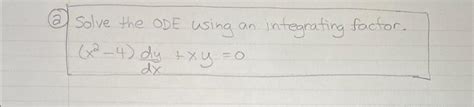 ② Solve the ODE using an integrating factor.
(x² - 4) dy/dx + xy = 0